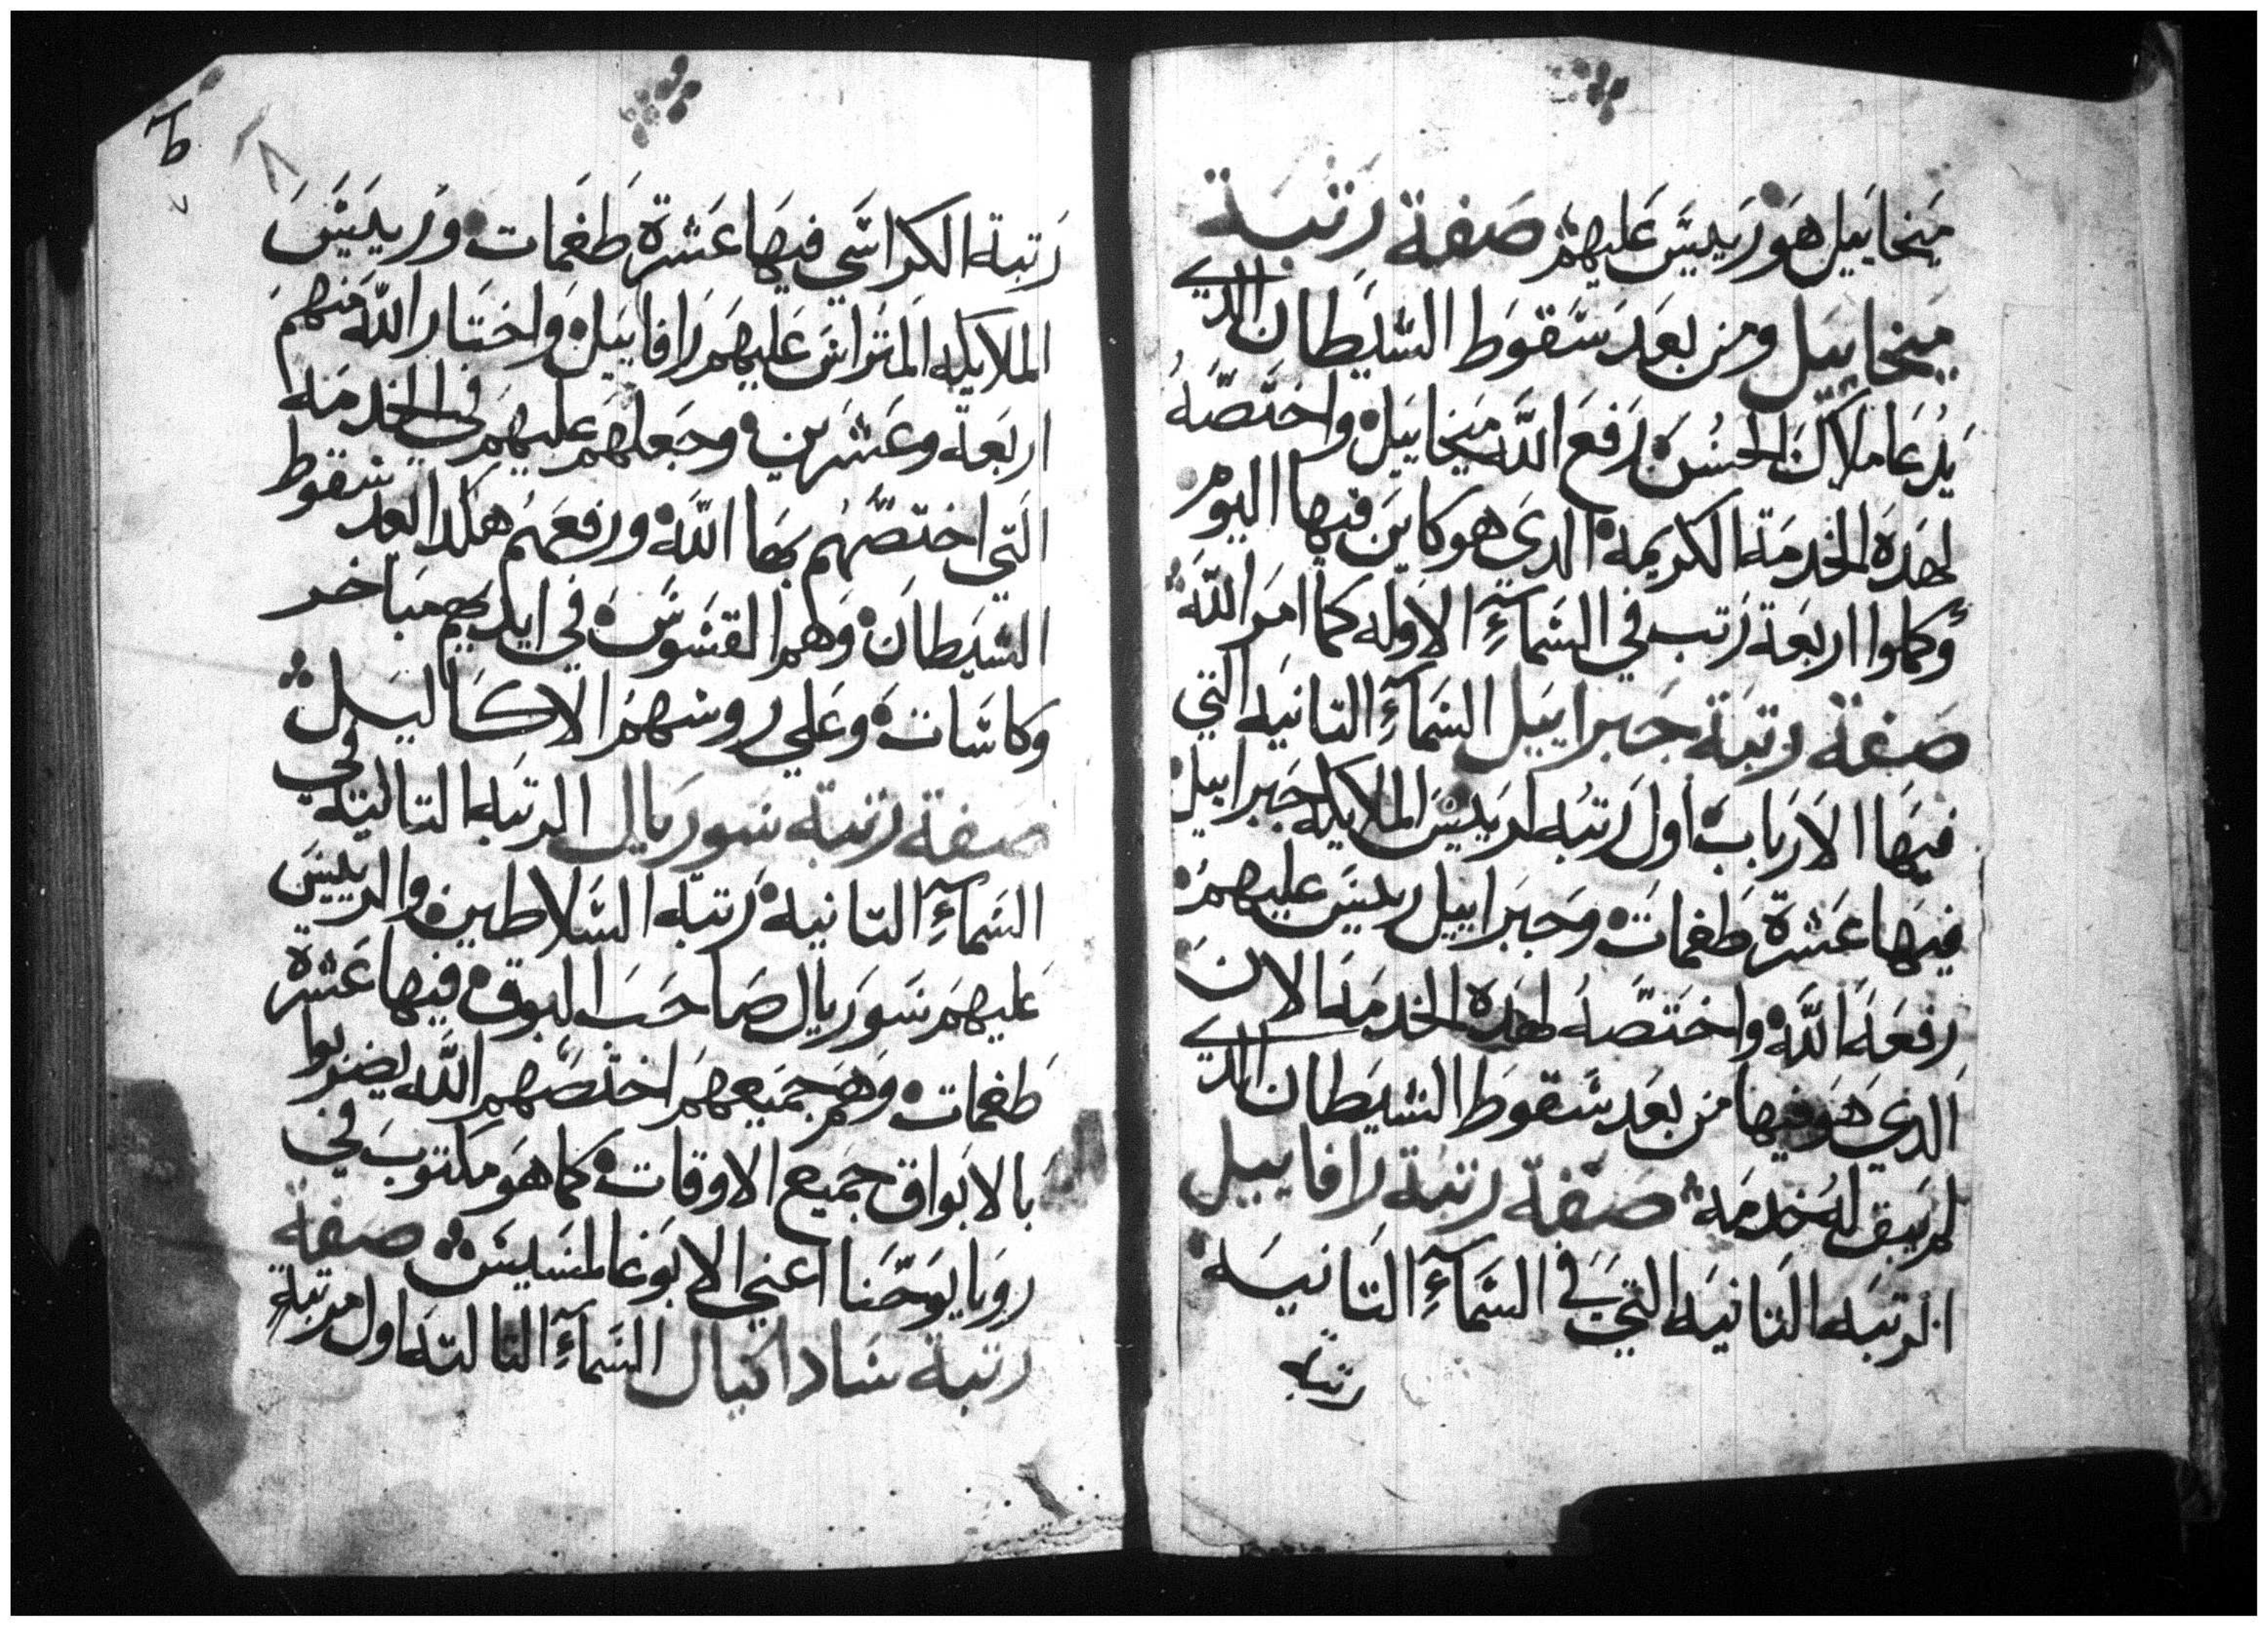 ميخاييل هو رييس عليهم صفة رتبة
ميخاييل ومن بعد سقوط الشيطان الدي
يدعا ملاك الحسن رفع الله ميخاييل واختصه
لهده الخدمة الكريمه الدي هو كاين فيها اليوم
وكملوا اربعة رتب في السماء الاوله كما امر الله
صفة رتبة جبراييل السماء التانيه التي
فيها الارباب اول رتبه لرييس الملايكه جبراييل
فيها عشرة طغمات وجبراييل رييس عليهم
رفعه الله واختصه لهده الخدمه الان
الدي هو فيها من بعد سقوط الشيطان الدي
لم يبق له خدمه صفة رتبة رافاييل
الرتبه التانيه التي في السماء التانيه
رتبة
ط
رتبة الكراسي فيها عشرة طغمات ورييس
الملايكه المتراس عليهم رافاييل واختار الله منهم
اربعة وعشرين وجعلهم عليهم في الخدمه
التي اختصهم بها الله ورفعهم هكدا بعد سقوط
الشيطان وهم القسوس في ايديهم مباخر
وكاسات وعلي روسهم الاكاليل
صفة رتبة سوريال الرتبه التالته في
السماء التانيه رتبه السلاطين والرييس
عليهم سوريال صاحب البوق فيها عشرة
طغمات وهم جميعهم اختصهم الله يضربوا
بالابواق جميع الاوقات كما هو مكتوب في
رويا يوحنا اعني الابوغالمسيس صفة
رتبة ساداكيال السماء التالته اول مرتبة